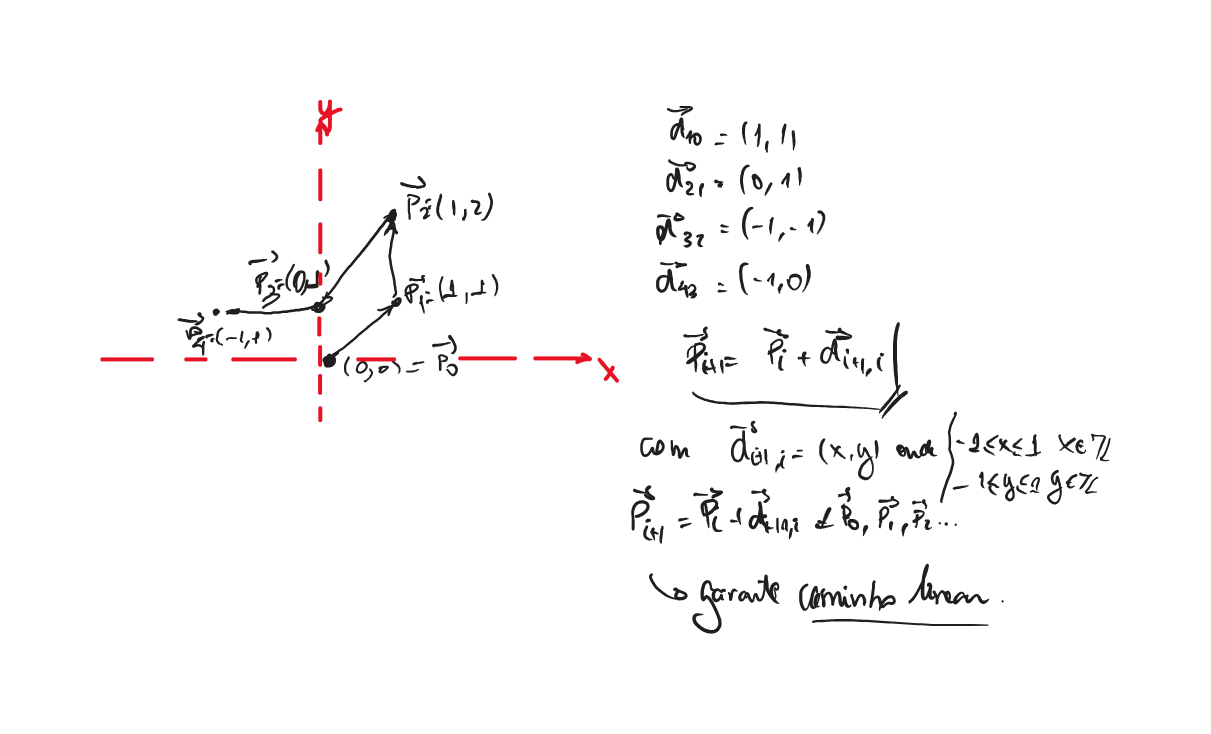 y
P⃗₂=(1,2)
P⃗₃=(0,1)
P⃗₁=(1,1)
P⃗₄=(-1,1)
(0,0) = P⃗₀
x
d⃗₁₀ = (1,1)
d⃗₂₁ = (0,1)
d⃗₃₂ = (-1,-1)
d⃗₄₃ = (-1,0)
P⃗ᵢ₊₁ = P⃗ᵢ + d⃗ᵢ₊₁,ᵢ
com d⃗ᵢ₊₁,ᵢ = (x,y) onde { -1≤x≤1 x∈ℤ
-1≤y≤1 y∈ℤ
P⃗ᵢ₊₁ = P⃗ᵢ + d⃗ᵢ₊₁,ᵢ ≠ P⃗₀, P⃗₁, P⃗₂ ...
↳ garante caminho linear.